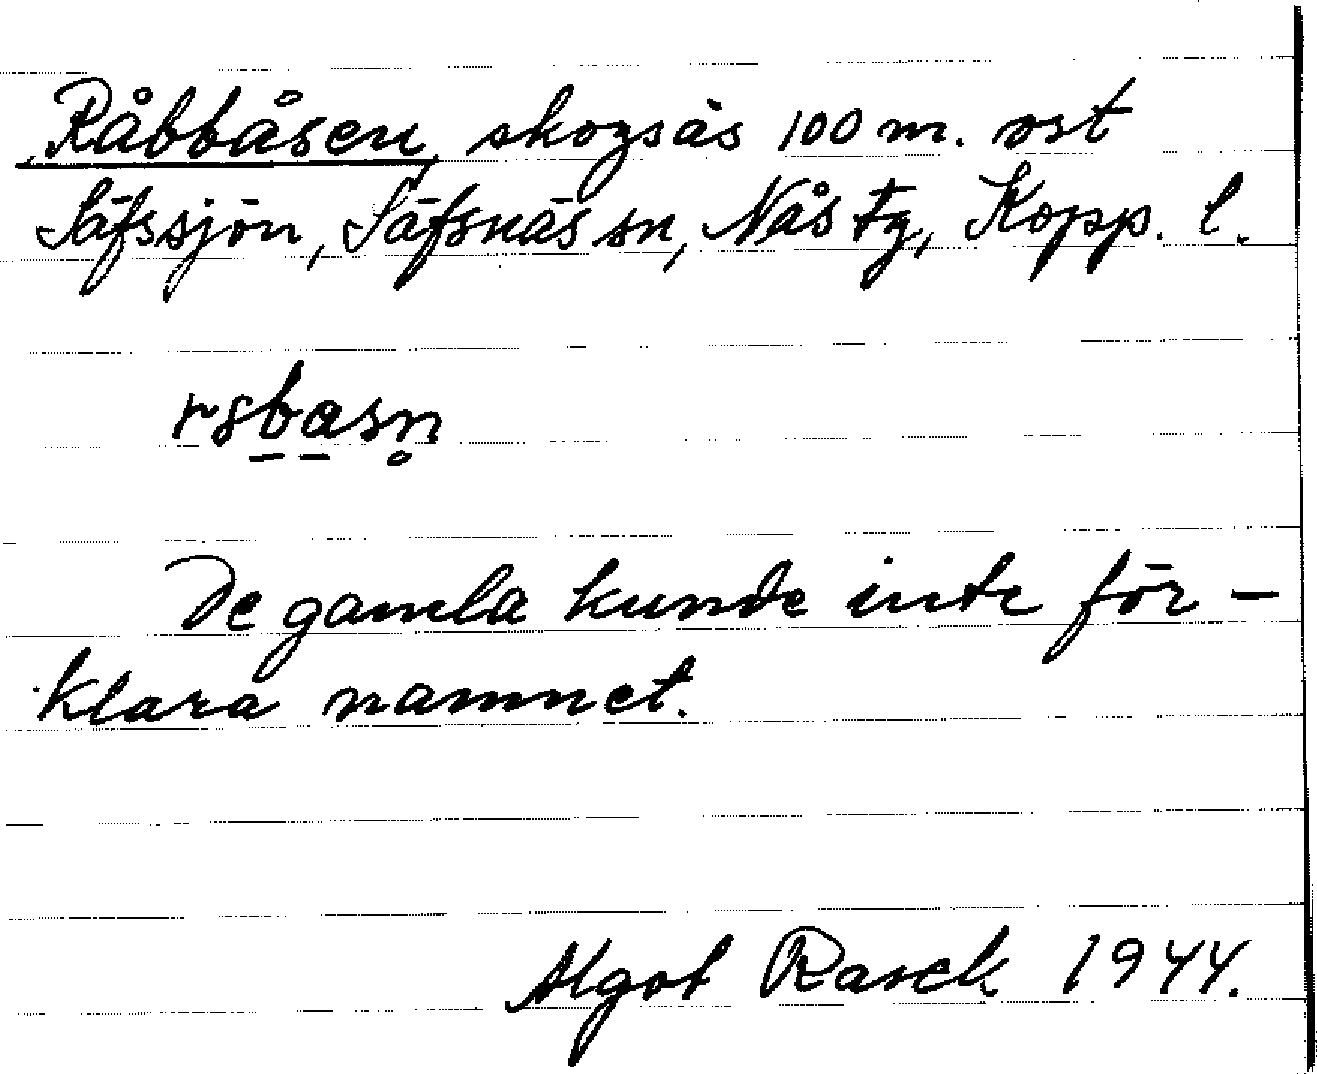 Råbbåsen, skogsås 100 m. ost
Säfssjön, Säfsnäs sn, Nås tg, Kopp. l.
De gamla kunde inte för-
klara namnet.
Algot Rasck 1944.